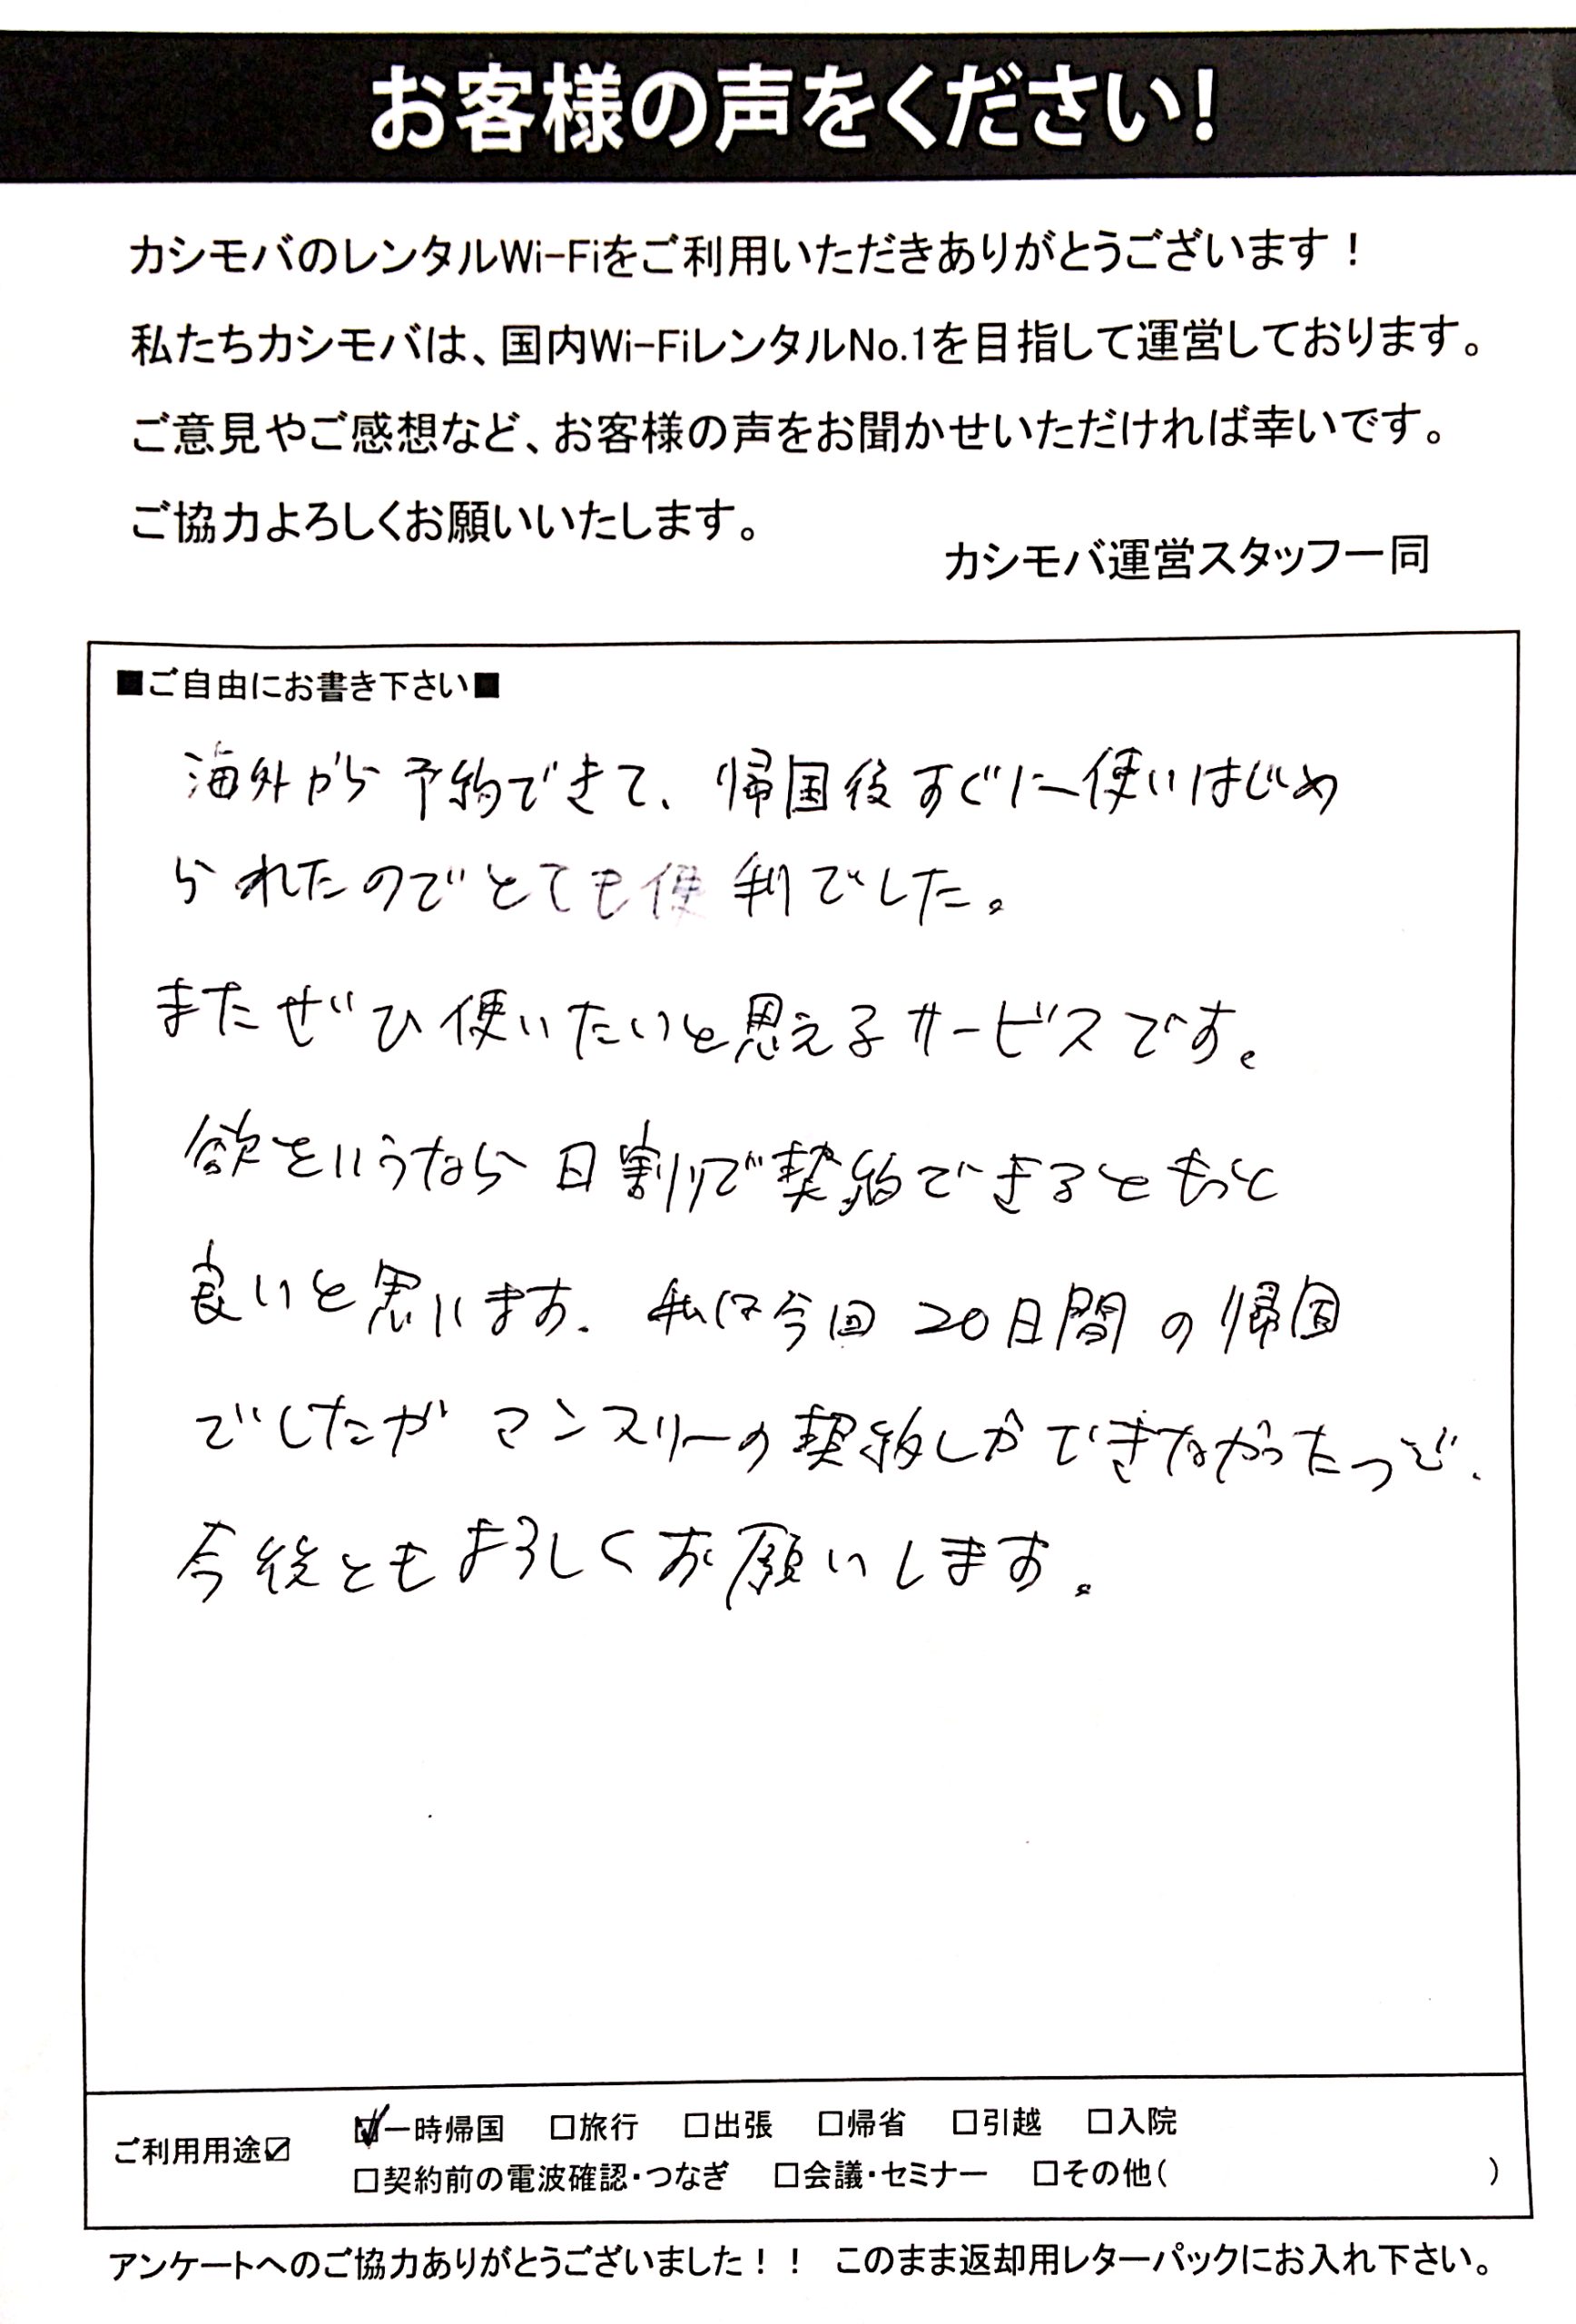 お客様の声をください!
カシモバのレンタルWi-Fiをご利用いただきありがとうございます！
私たちカシモバは、国内Wi-FiレンタルNo.1を目指して運営しております。
ご意見やご感想など、お客様の声をお聞かせいただければ幸いです。
ご協力よろしくお願いいたします。
カシモバ運営スタッフ一同
■ご自由にお書き下さい■
海外から予約できて、帰国後すぐに使いはじめ
られたのでとても便利でした。
またぜひ使いたいと思えるサービスです。
欲をいうなら日割りで契約できるともっと
良いと思います。私は今回20日間の帰国
でしたがマンスリーの契約しかできなかったので、
今後ともよろしくお願いします。
ご利用用途☑ ☑一時帰国 □旅行 □出張 □帰省 □引越 □入院
□契約前の電波確認・つなぎ □会議・セミナー □その他( )
アンケートへのご協力ありがとうございました！！ このまま返却用レターパックにお入れ下さい。